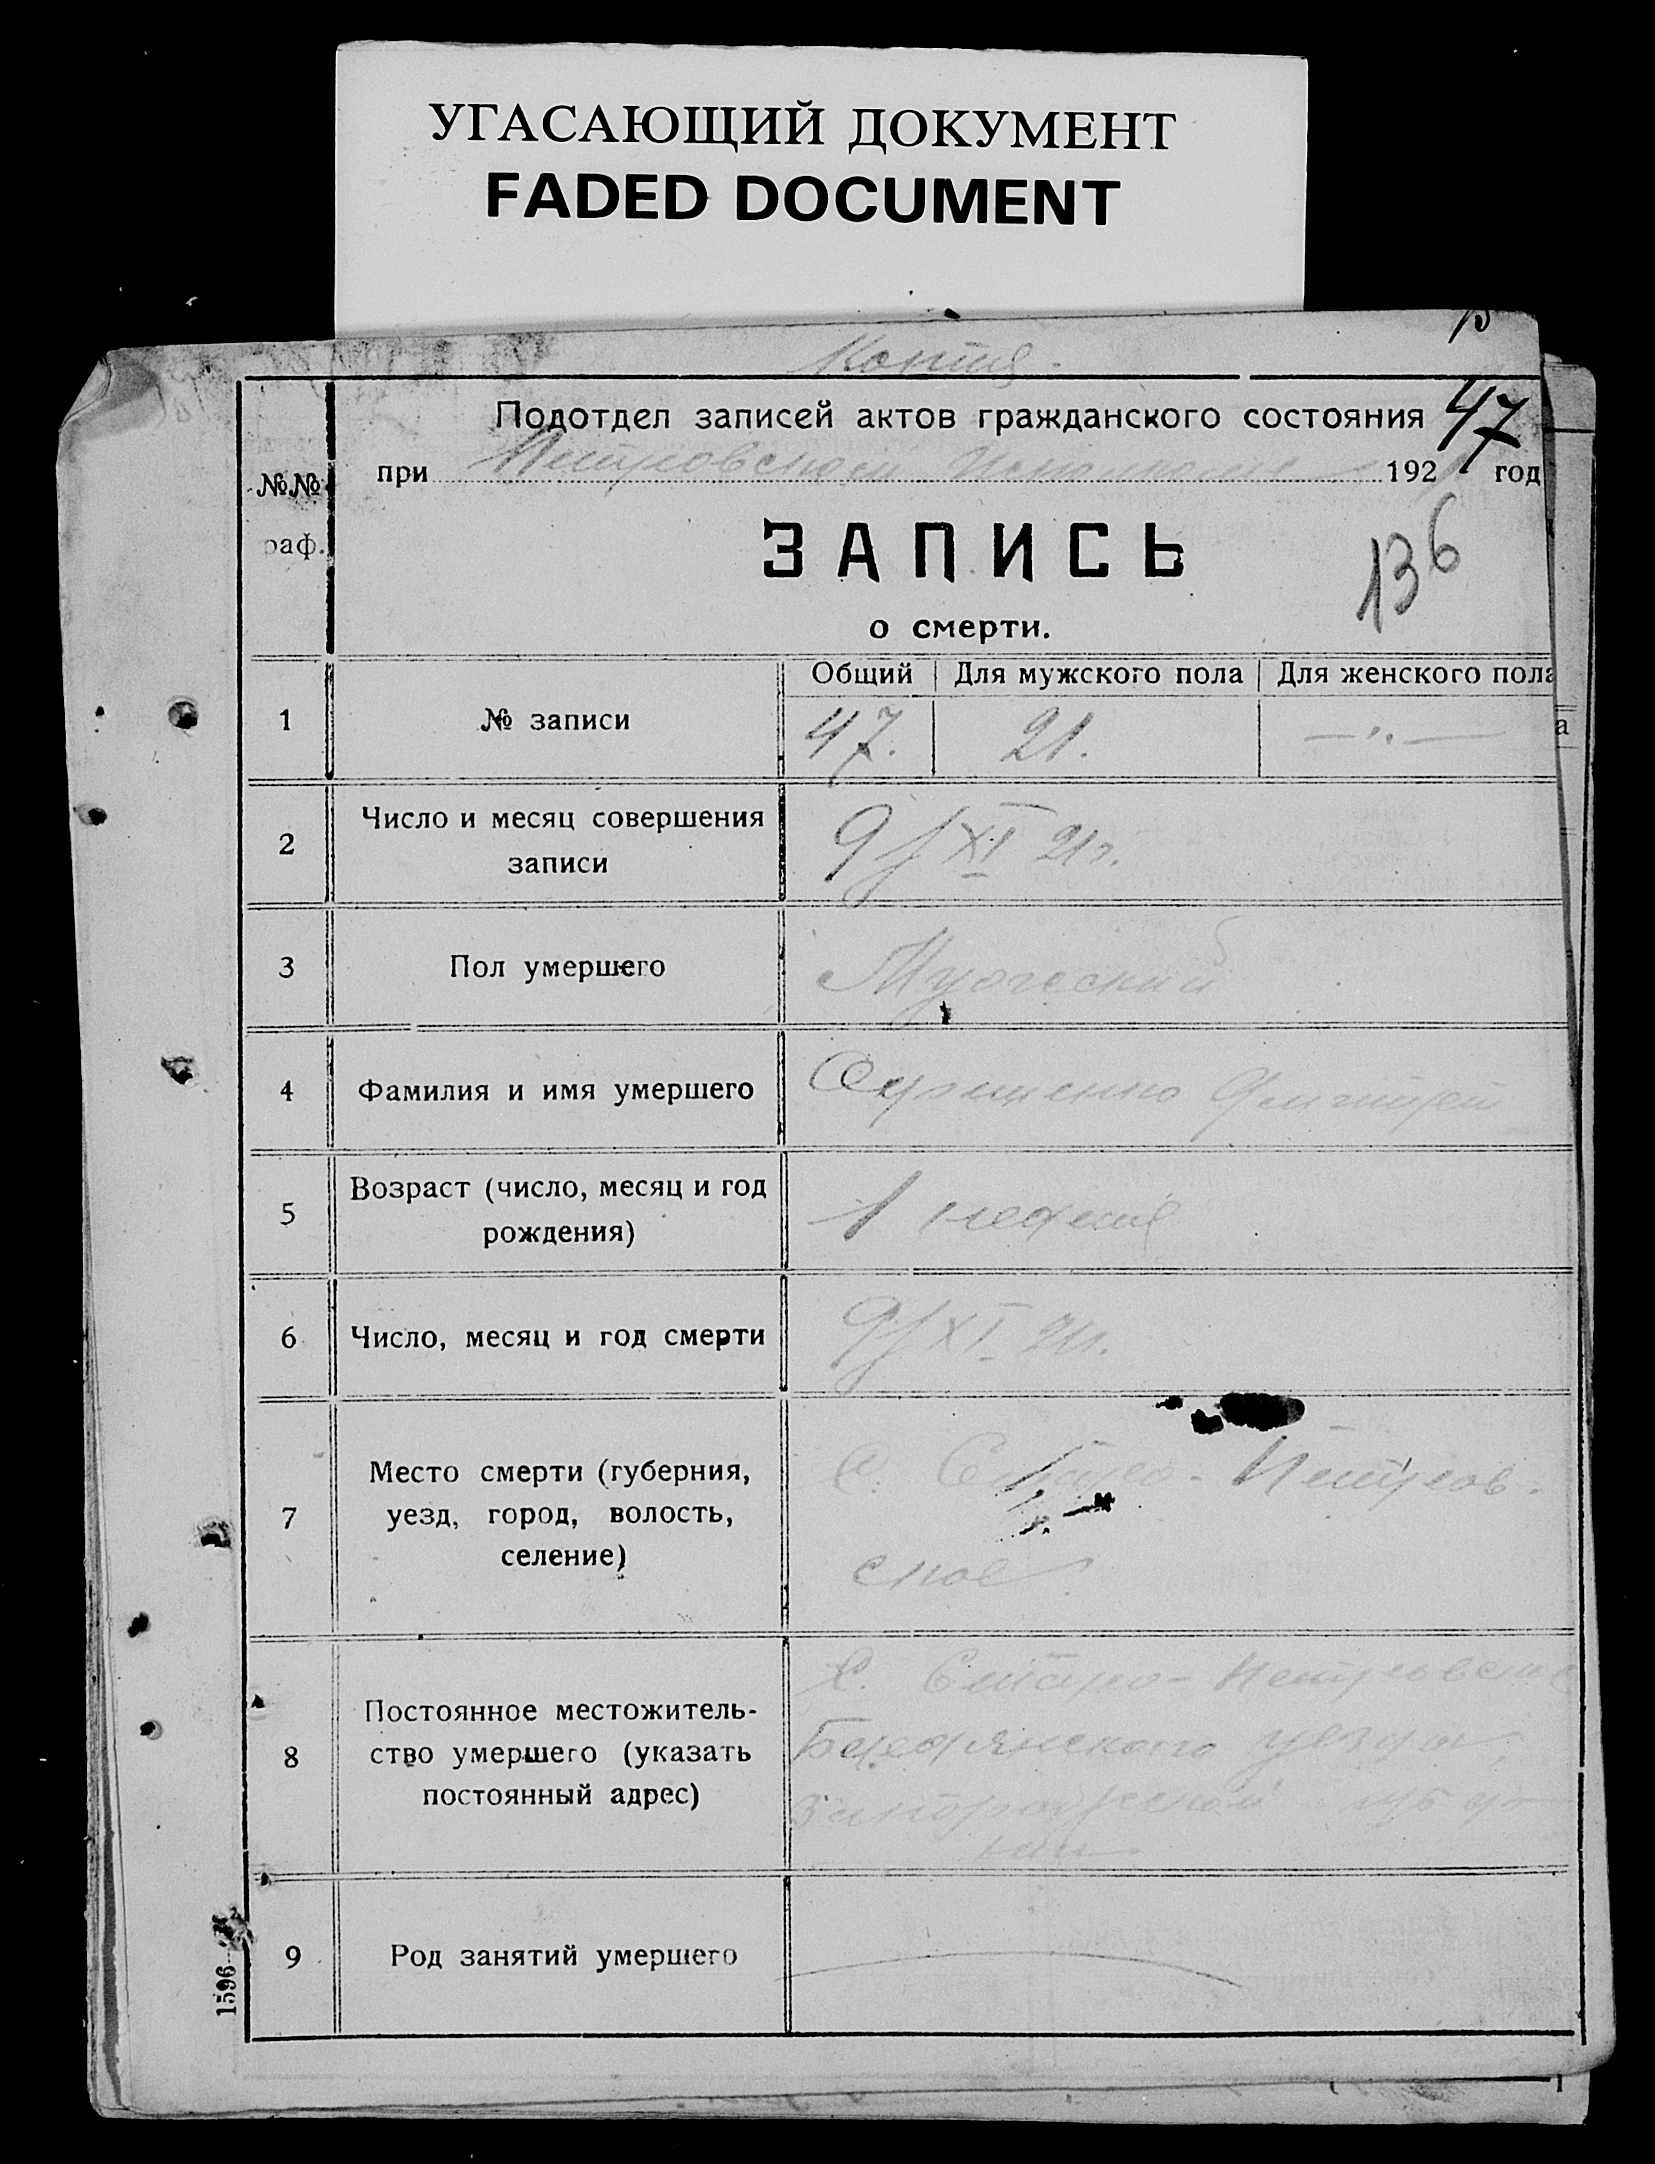 УГАСАЮЩИЙ ДОКУМЕНТ
FADED DOCUMENT
Копия.
Подотдел записей актов гражданского состояния
47
при Петровском Исполкоме 1921 год
№№
раф.
ЗАПИСЬ
136
о смерти.
Общий Для мужского пола Для женского пола
1 № записи 47. 21. —"—
2 Число и месяц совершения
записи
9/XI 21г.
3 Пол умершего Мужеский
4 Фамилия и имя умершего Дмитрий
5 Возраст (число, месяц и год
рождения)
1 неделя
6 Число, месяц и год смерти 9/XI 21г.
7 Место смерти (губерния,
уезд, город, волость,
селение)
С. Старо-Петров-
ское
8 Постоянное местожитель-
ство умершего (указать
постоянный адрес)
С. Старо-Петровское
Бердянского уезда
Запорожской губер-
нии
9 Род занятий умершего
1596